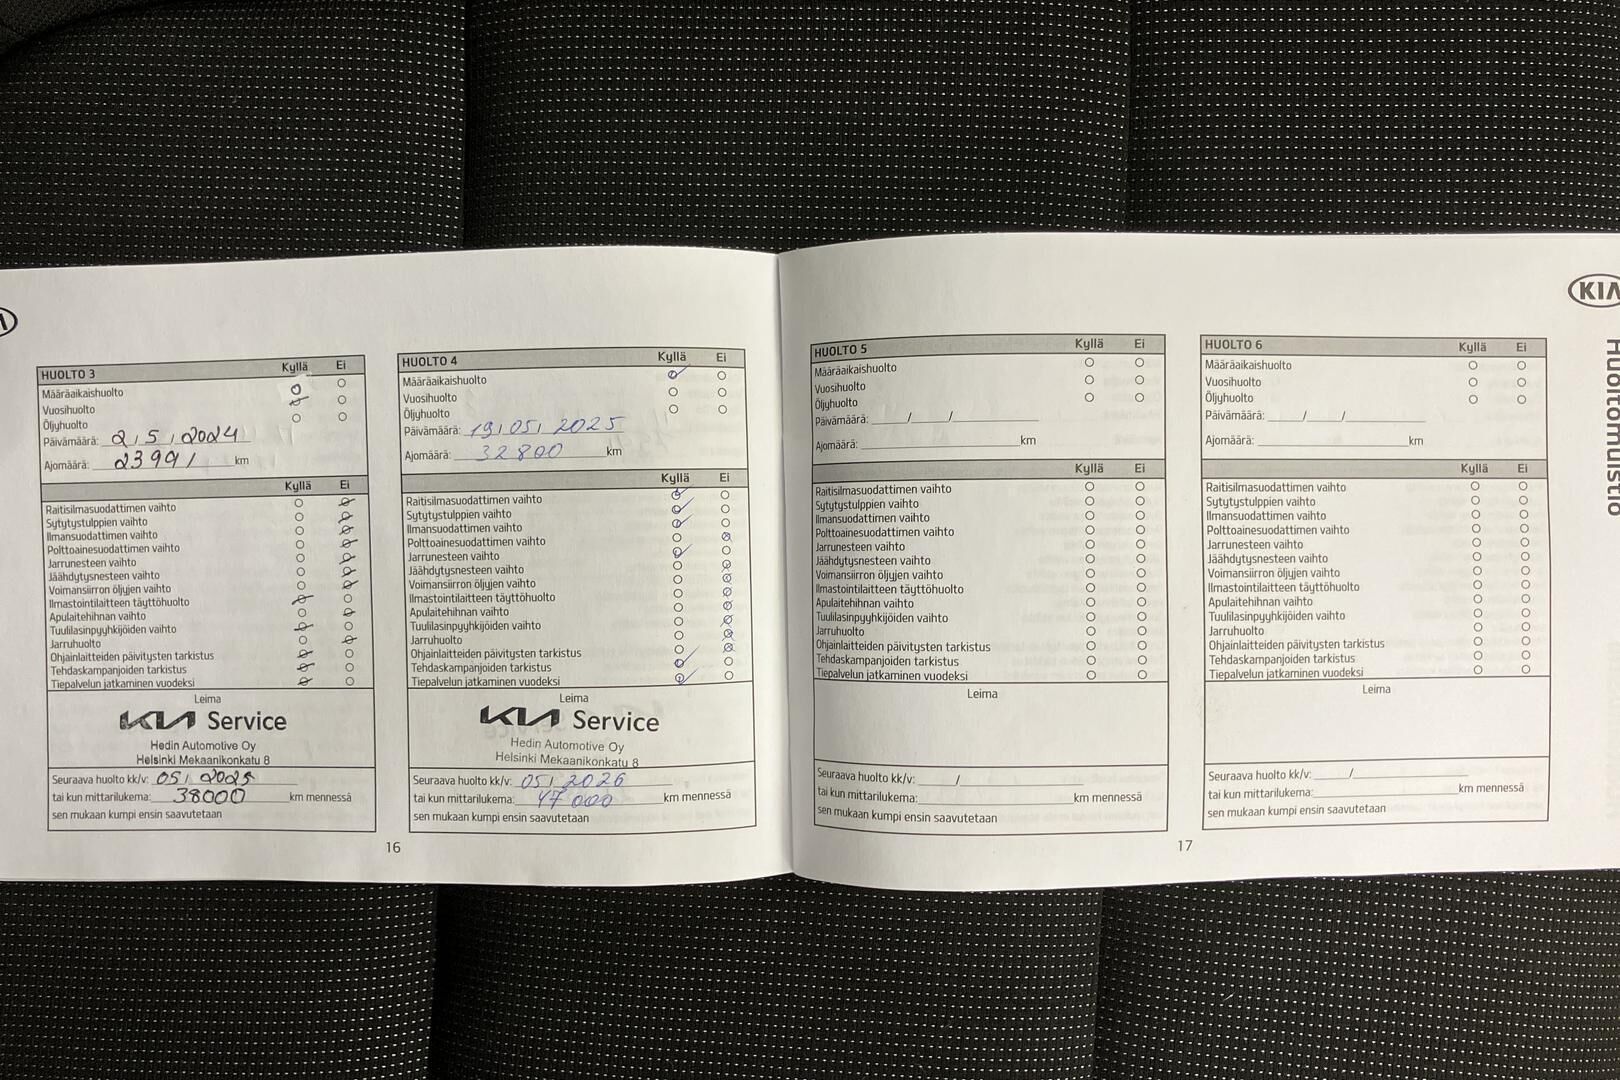 HUOLTO 3 Kyllä Ei
Määräaikaishuolto
Vuosihuolto
Öljyhuolto
Päivämäärä: 2 / 5 / 2024
Ajomäärä: 23991 km
Kyllä Ei
Raitisilmasuodattimen vaihto
Sytytystulppien vaihto
Ilmansuodattimen vaihto
Polttoainesuodattimen vaihto
Jarrunesteen vaihto
Jäähdytysnesteen vaihto
Voimansiirron öljyjen vaihto
Ilmastointilaitteen täyttöhuolto
Apulaitehihnan vaihto
Tuulilasinpyyhkijöiden vaihto
Jarruhuolto
Ohjainlaitteiden päivitysten tarkistus
Tehdaskampanjoiden tarkistus
Tiepalvelun jatkaminen vuodeksi
Leima
KIA Service
Hedin Automotive Oy
Helsinki Mekaanikonkatu 8
Seuraava huolto kk/v: 05 / 2025
tai kun mittarilukema: 38000 km mennessä
sen mukaan kumpi ensin saavutetaan
HUOLTO 4 Kyllä Ei
Määräaikaishuolto
Vuosihuolto
Öljyhuolto
Päivämäärä: 19 / 05 / 2025
Ajomäärä: 32800 km
Kyllä Ei
Raitisilmasuodattimen vaihto
Sytytystulppien vaihto
Ilmansuodattimen vaihto
Polttoainesuodattimen vaihto
Jarrunesteen vaihto
Jäähdytysnesteen vaihto
Voimansiirron öljyjen vaihto
Ilmastointilaitteen täyttöhuolto
Apulaitehihnan vaihto
Tuulilasinpyyhkijöiden vaihto
Jarruhuolto
Ohjainlaitteiden päivitysten tarkistus
Tehdaskampanjoiden tarkistus
Tiepalvelun jatkaminen vuodeksi
Leima
KIA Service
Hedin Automotive Oy
Helsinki Mekaanikonkatu 8
Seuraava huolto kk/v: 05 / 2026
tai kun mittarilukema: 47000 km mennessä
sen mukaan kumpi ensin saavutetaan
16
HUOLTO 5 Kyllä Ei
Määräaikaishuolto
Vuosihuolto
Öljyhuolto
Päivämäärä: / /
Ajomäärä: km
Kyllä Ei
Raitisilmasuodattimen vaihto
Sytytystulppien vaihto
Ilmansuodattimen vaihto
Polttoainesuodattimen vaihto
Jarrunesteen vaihto
Jäähdytysnesteen vaihto
Voimansiirron öljyjen vaihto
Ilmastointilaitteen täyttöhuolto
Apulaitehihnan vaihto
Tuulilasinpyyhkijöiden vaihto
Jarruhuolto
Ohjainlaitteiden päivitysten tarkistus
Tehdaskampanjoiden tarkistus
Tiepalvelun jatkaminen vuodeksi
Leima
Seuraava huolto kk/v: /
tai kun mittarilukema: km mennessä
sen mukaan kumpi ensin saavutetaan
HUOLTO 6 Kyllä Ei
Määräaikaishuolto
Vuosihuolto
Öljyhuolto
Päivämäärä: / /
Ajomäärä: km
Kyllä Ei
Raitisilmasuodattimen vaihto
Sytytystulppien vaihto
Ilmansuodattimen vaihto
Polttoainesuodattimen vaihto
Jarrunesteen vaihto
Jäähdytysnesteen vaihto
Voimansiirron öljyjen vaihto
Ilmastointilaitteen täyttöhuolto
Apulaitehihnan vaihto
Tuulilasinpyyhkijöiden vaihto
Jarruhuolto
Ohjainlaitteiden päivitysten tarkistus
Tehdaskampanjoiden tarkistus
Tiepalvelun jatkaminen vuodeksi
Leima
Seuraava huolto kk/v: /
tai kun mittarilukema: km mennessä
sen mukaan kumpi ensin saavutetaan
17
KIA
Huoltomuistio